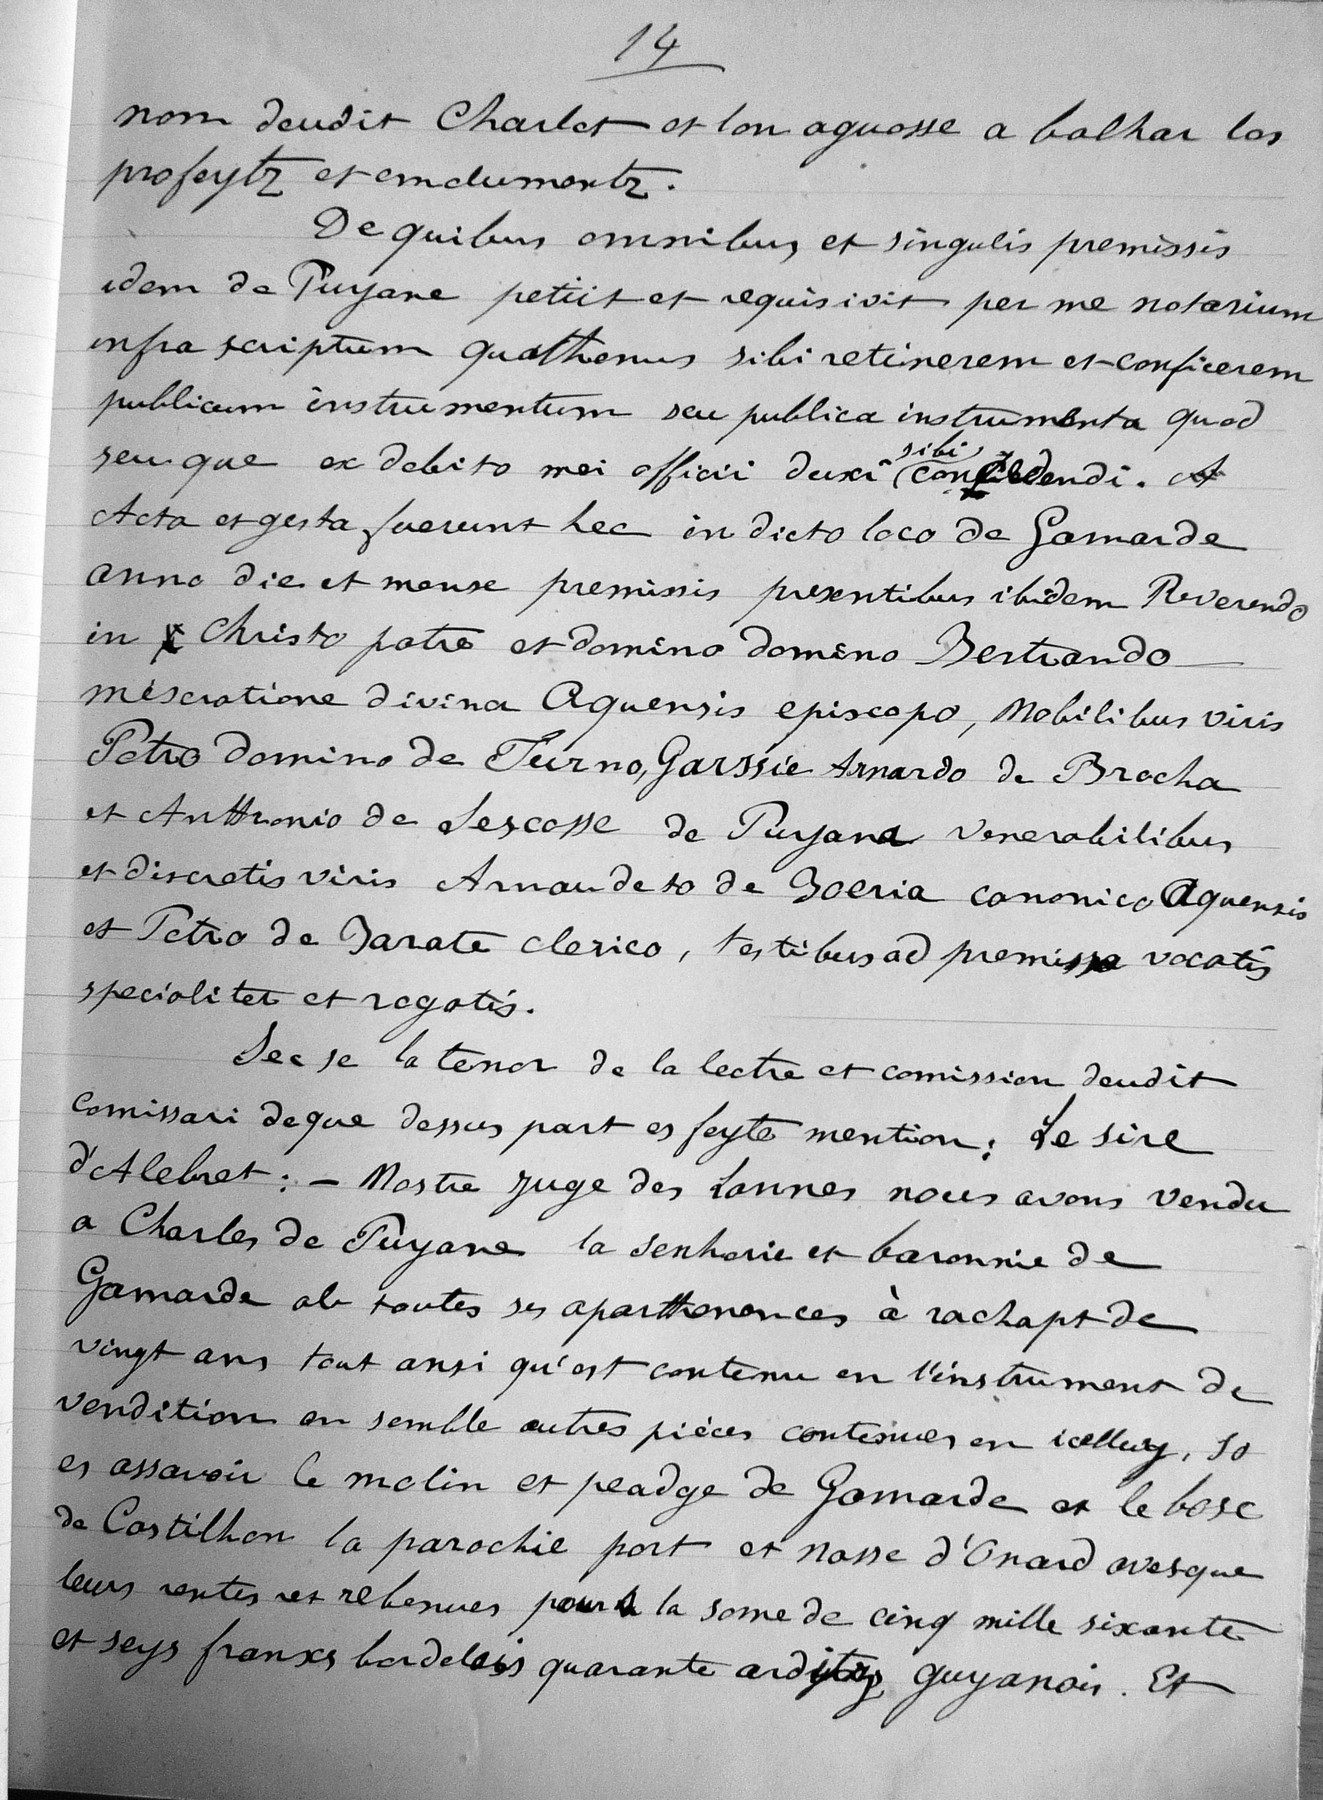 14
nom deudit Charlet et lon aguosse a balhar los
profeytz et emolumentz.
De quibus omnibus et singulis premissis
idem de Puyane petiit et requisivit per me notarium
infra scriptum quathenus sibi retinerem et conficerem
publicum instrumentum seu publica instrumenta quod
seu que ex debito mei officii duxi sibi concedendi.
Acta et gesta fuerunt hec in dicto loco de Gamarde
anno die et mense premissis presentibus ibidem Reverendo
in Christo patre et domino domino Bertrando
miseratione divina Aquensis episcopo, Nobilibus viris
Petro domino de Turno, Garssie Arnardo de Brocha
et Anthonio de Lescosse de Puyana Venerabilibus
et discretis viris Arnaudeto de Boeria canonico Aquensis
et Petro de Barate clerico, testibus ad premissa vocatis
specialiter et rogatis.
Sec se la tenor de la lectre et comission deudit
comissari deque dessus part es feyte mention : Le sire
d'Alebret : – Nostre juge des Lannes nous avons vendu
a Charles de Puyane la senhorie et baronnie de
Gamarde ab toutes ses aparthenences à rachapt de
vingt ans tout ansi qu'est contenu en l'instrument de
vendition en semble autres pièces contenues en icelluy, so
es assavoir le molin et peadge de Gamarde et le bosc
de Castilhon la parochie port et nasse d'Onard avesque
leurs rentes et rebenues pour la some de cinq mille sixante
et seys franxs bordelois quarante arditz guyanois. Et